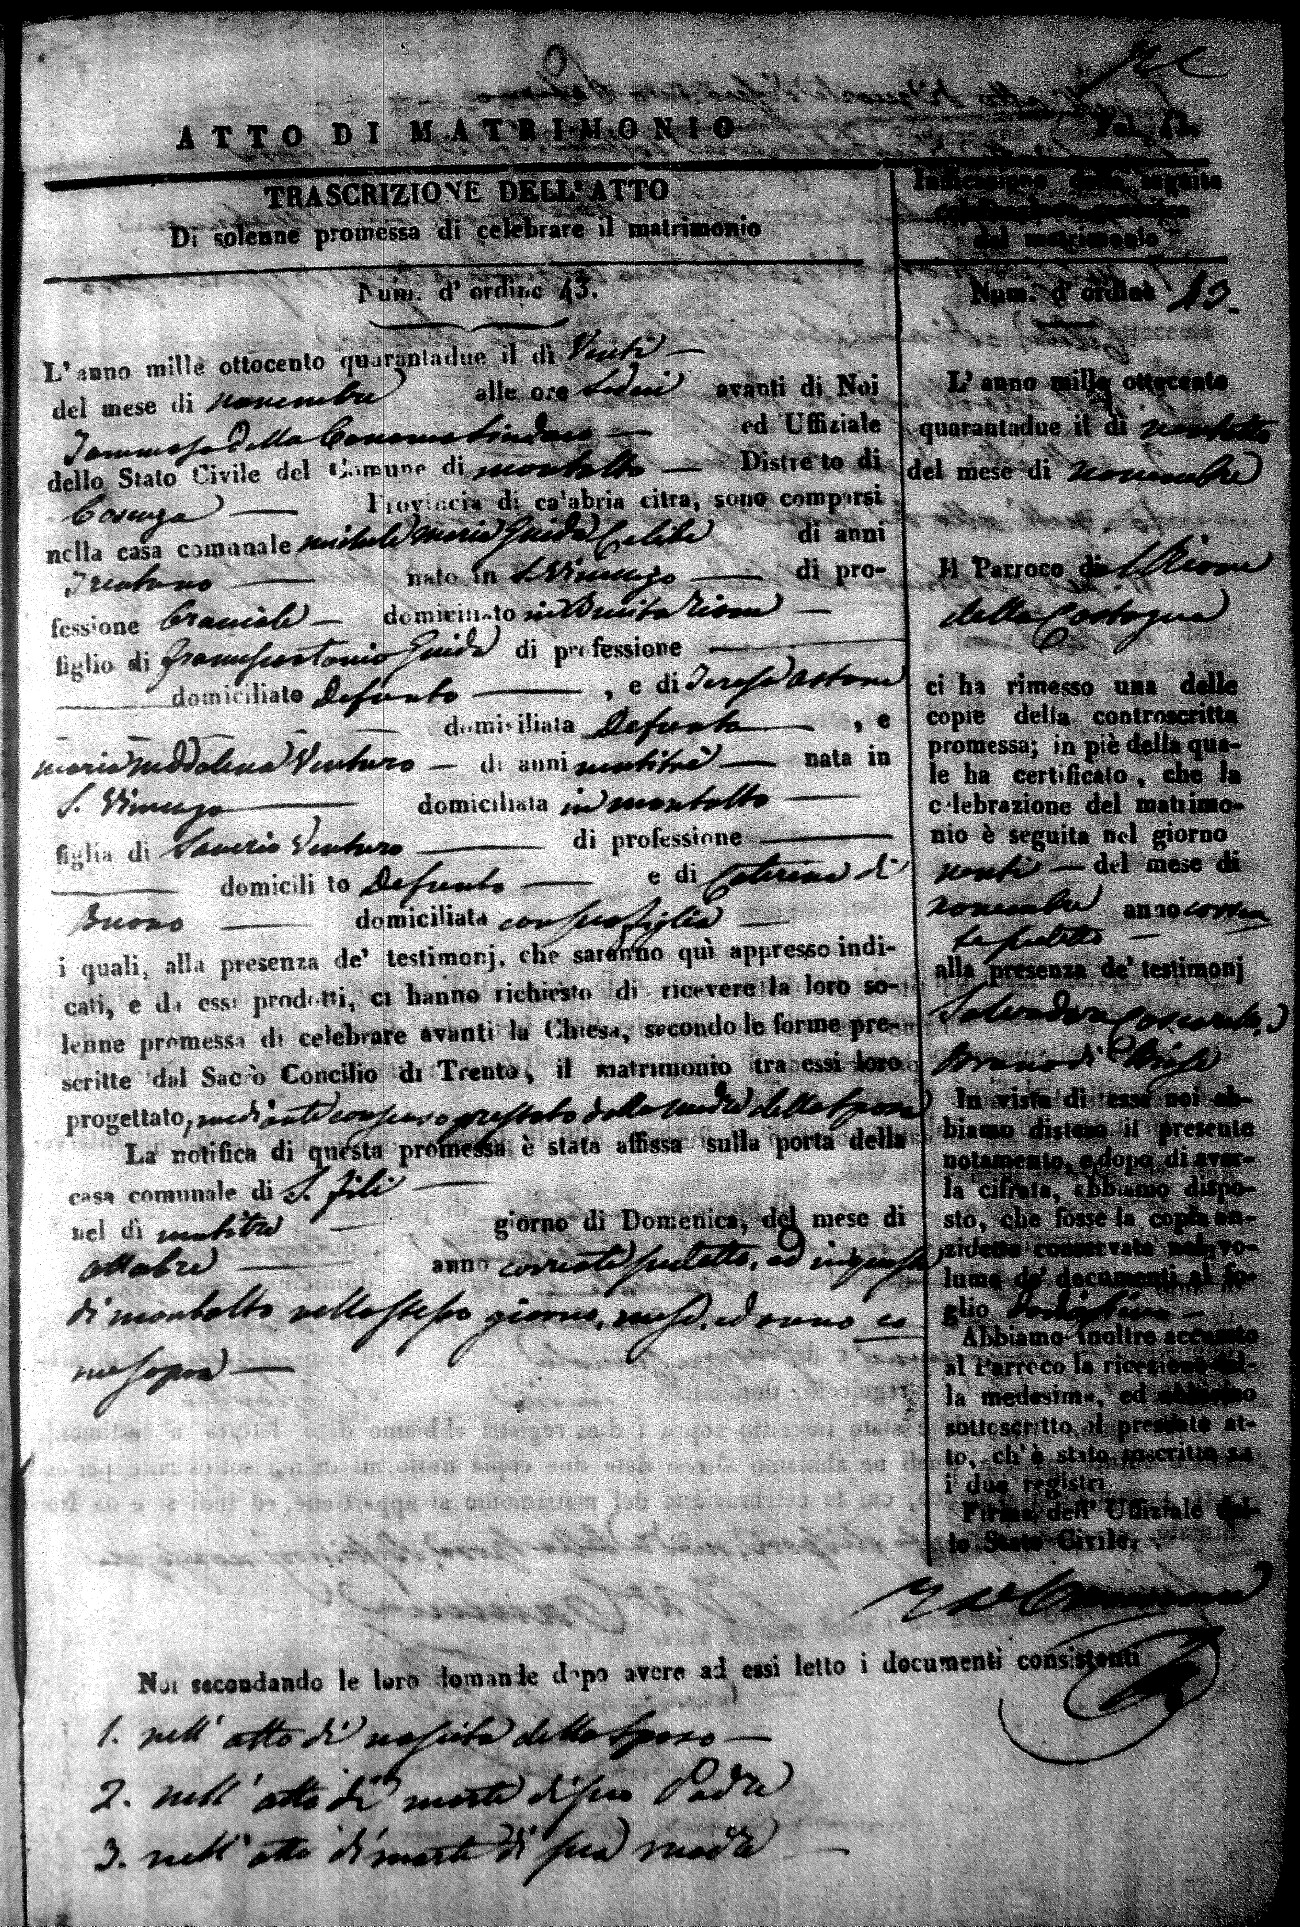 ATTO DI MATRIMONIO
TRASCRIZIONE DELL'ATTO
Di solenne promessa di celebrare il matrimonio
Num. d'ordine 43.
L'anno mille ottocento quarantadue il dì Venti
del mese di novembre alle ore avanti di Noi
Tommaso Della Sindaco ed Uffiziale
dello Stato Civile del Comune di montalto Distretto di
Cosenza Provincia di calabria citra, sono comparsi
nella casa comunale michele maria Guida Celibe di anni
Trentuno nato in S. Vincenzo di pro-
fessione Bracciale domiciliato in
figlio di Francescantonio Guida di professione
domiciliato Defunto , e di Teresa
domiciliata Defunta , e
maria maddalena Venturo di anni ventitrè nata in
S. Vincenzo domiciliata in montalto
figlia di Saverio Venturo di professione
domiciliato Defunto e di Caterina di
Buono domiciliata con sua figlia
i quali, alla presenza de' testimonj, che saranno quì appresso indi-
cati, e da essi prodotti, ci hanno richiesto di ricevere la loro so-
lenne promessa di celebrare avanti la Chiesa, secondo le forme pre-
scritte dal Sacro Concilio di Trento, il matrimonio tra essi loro
progettato, mediante consenso prestato dalla madre della sposa
La notifica di questa promessa è stata affissa sulla porta della
casa comunale di S. Fili
nel dì ventitre giorno di Domenica, del mese di
ottobre anno corrente suddetto, ed in quella
di montalto nello stesso giorno, mese, ed anno co
me sopra
Noi secondando le loro domande dopo avere ad essi letto i documenti consistenti
1. nell' atto di nascita dello sposo
2. nell' atto di morte di suo Padre
3. nell' atto di morte di sua madre
Indicazione della seguita
celebrazione canonica
del matrimonio
Num. d'ordine 43.
L'anno mille ottocento
quarantadue il dì ventotto
del mese di novembre
Il Parroco di
della
ci ha rimesso una delle
copie della controscritta
promessa; in piè della qua-
le ha certificato, che la
celebrazione del matrimo-
nio è seguita nel giorno
venti del mese di
novembre anno corren
te suddetto
alla presenza de' testimonj
Salvadore
In vista di esse noi ab-
biamo disteso il presente
notamento, e dopo di aver-
la cifrata, abbiamo dispo-
sto, che fosse la copia an-
zidetta conservata nel vo-
lume de' documenti al fo-
glio
Abbiamo inoltre accusato
al Parroco la ricezione del-
la medesima, ed abbiamo
sottoscritto il presente at-
to, ch'è stato inscritto su
i due registri.
Firma dell' Uffiziale del-
lo Stato Civile.